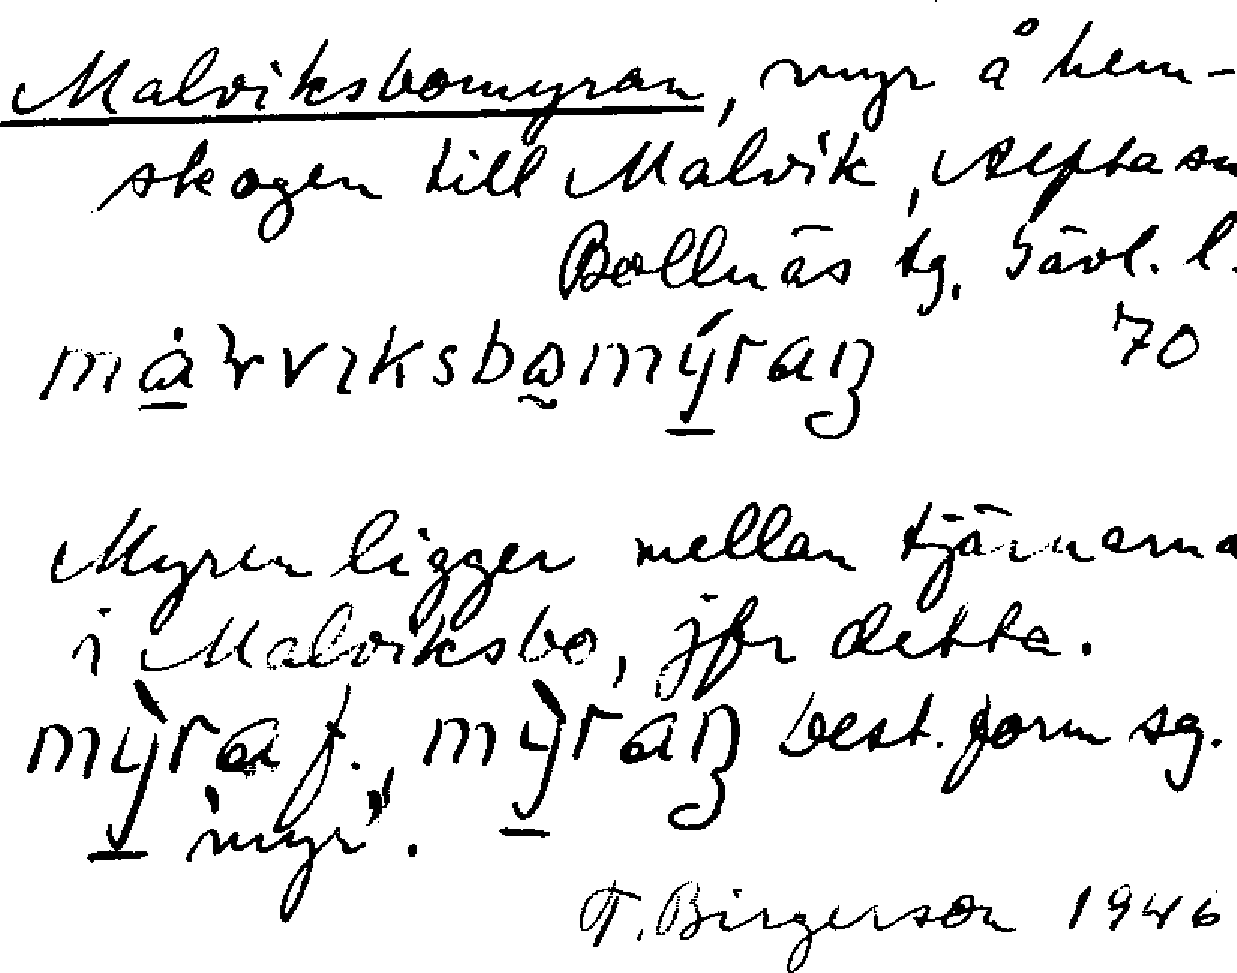 Malviksbomyran, myr å hem-
skogen till Malvik, Alfta sn
Bollnäs tg, Gävl. l.
70
Myren ligger mellan tjärnarna
i Malviksbo, jfr detta.
best. form sg.
'myr'.
T. Birgerson 1946